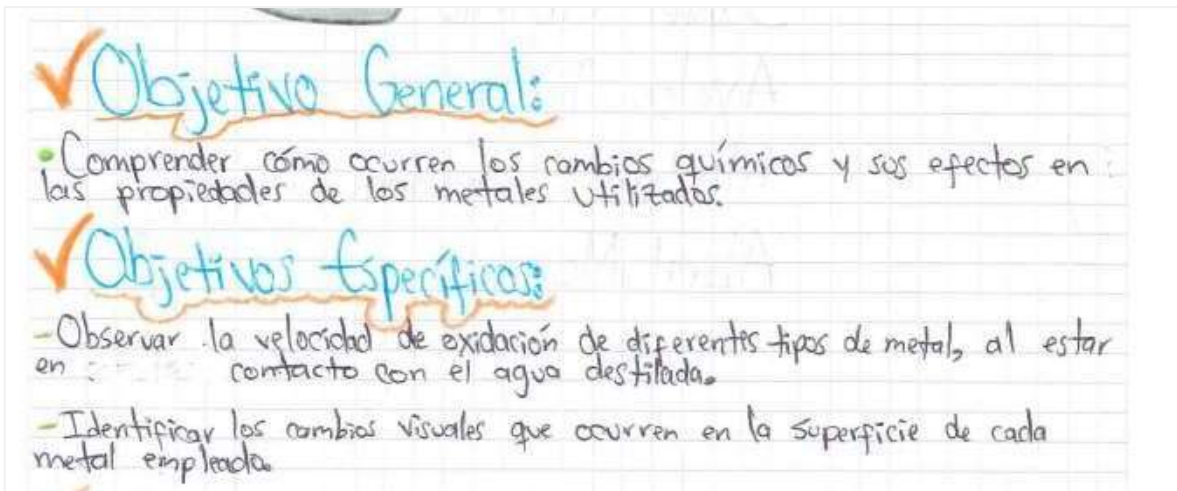 Objetivo General:
• Comprender cómo ocurren los cambios químicos y sus efectos en
las propiedades de los metales utilizados.
Objetivos Específicos:
- Observar la velocidad de oxidación de diferentes tipos de metal, al estar
en contacto con el agua destilada.
- Identificar los cambios visuales que ocurren en la superficie de cada
metal empleado.